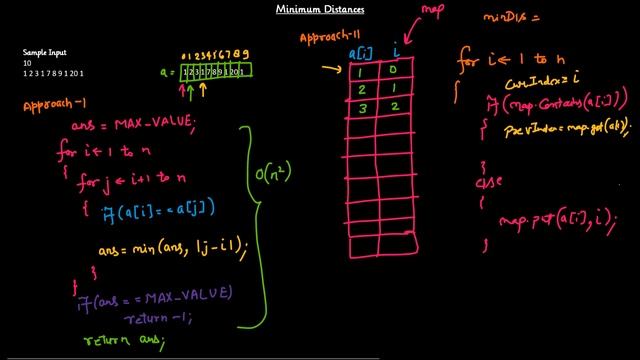 Minimum Distances
Sample Input
10
1 2 3 1 7 8 9 1 20 1
0 1 2 3 4 5 6 7 8 9
a = 1 2 3 1 7 8 9 1 20 1
Approach-1
ans = MAX_VALUE;
for i ← 1 to n
{ for j ← i+1 to n
{ if (a[i] == a[j])
ans = min(ans, |j-i|);
}
}
if (ans == MAX_VALUE)
return -1;
return ans;
O(n²)
Approach-11
map
a[i] i
1 0
2 1
3 2
minDis =
for i ← 1 to n
{ currIndex = i
if (map.contains(a[i]))
{ prevIndex = map.get(a[i]);
}
else
{
map.put(a[i], i);
}